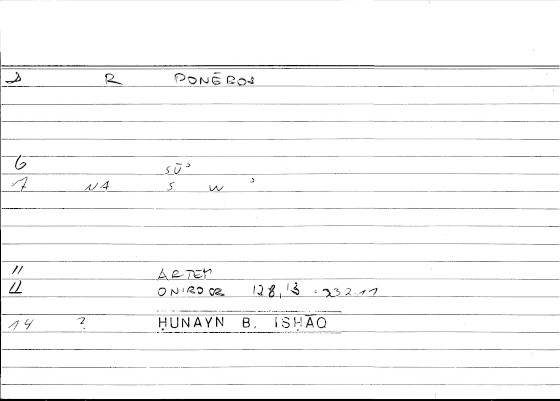 R PONĒROS
6 sūʾ
7 NA s w ʾ
11 ARTEM
ONIROCR 128,13 = 232.11
14 ? ḤUNAYN B. ISḤĀQ